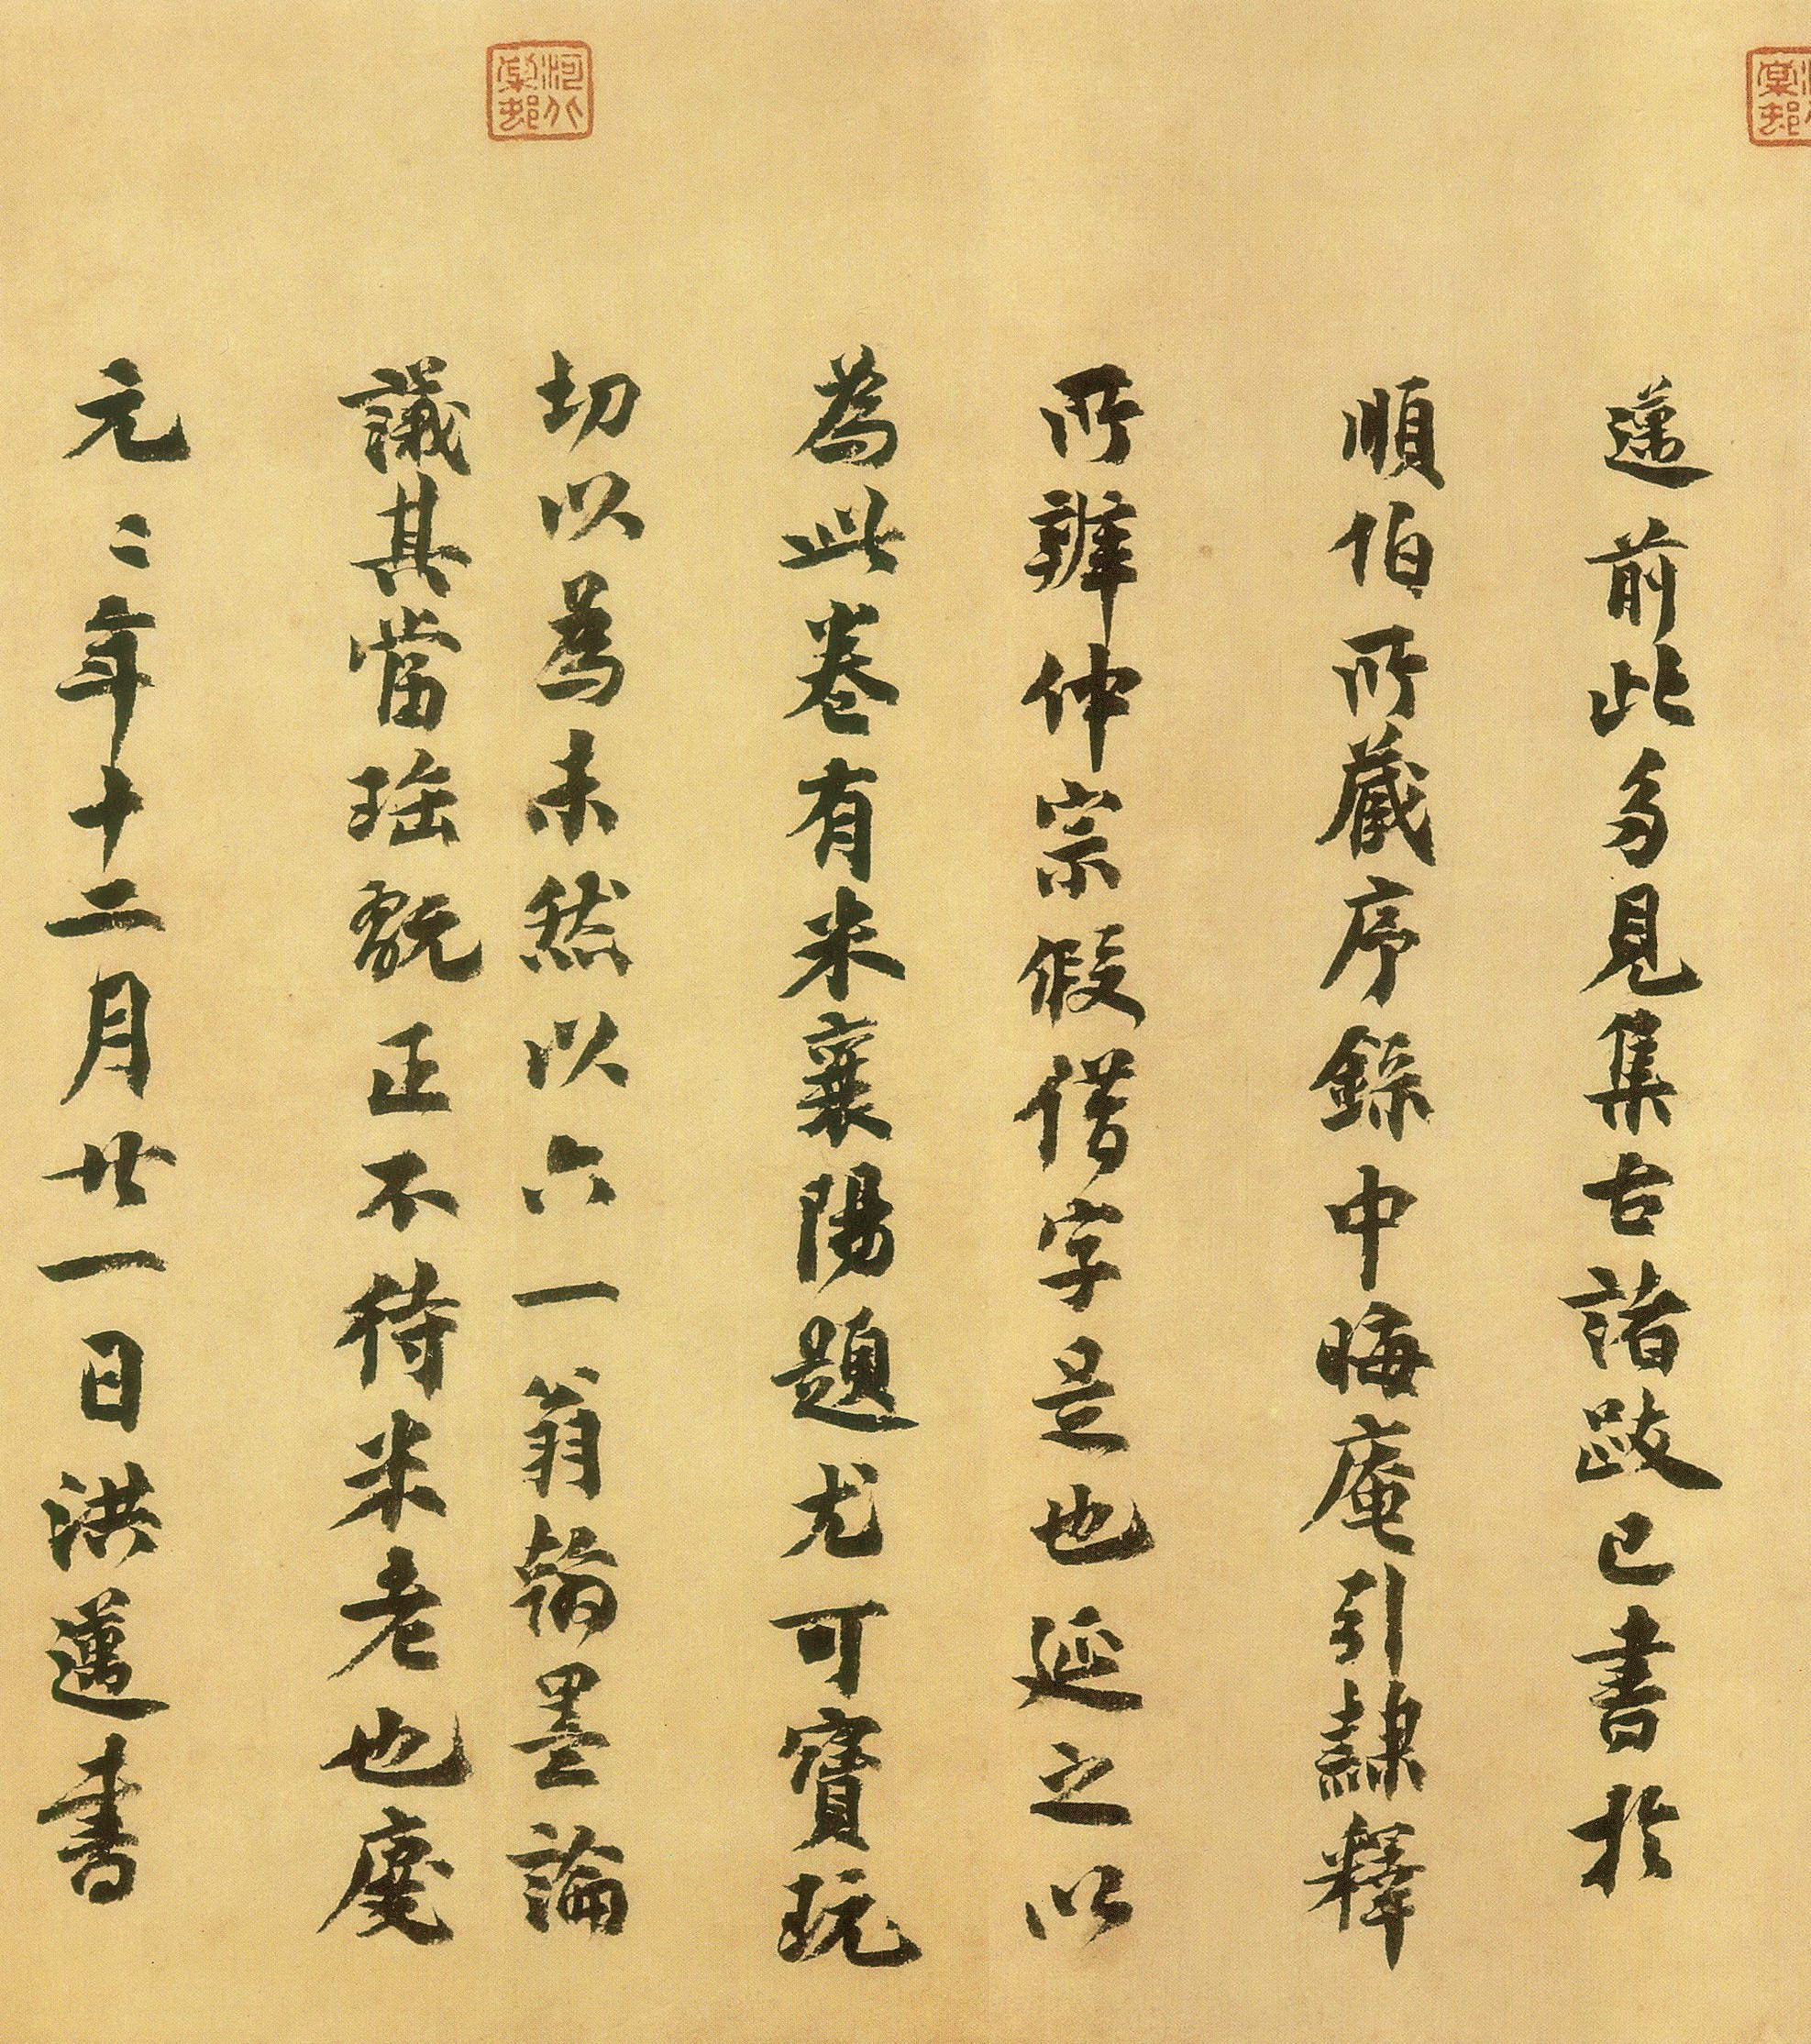 邁前此多見集古諸跋已書於
順伯所藏序錄中晦庵引隸釋
所辨仲宗假借字是也延之以
為此卷有米襄陽題尤可寶玩
切以為未然以六一翁翰墨論
議其當瑤翫正不待米老也慶
元二二年十二月廿一日洪邁書